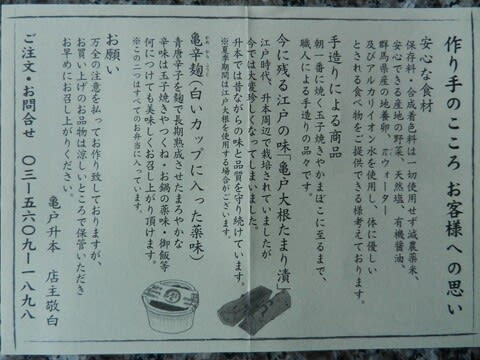 作り手のこころ お客様への思い
安心な食材
保存料・合成着色料は一切使用せず減農薬米、
安心できる産地の野菜、天然塩、有機醤油、
群馬県産の地養卵、πウォーター
及びアルカリイオン水を使用し、体に優しい
とされる食べ物をご提供できる様考えております。
手造りによる商品
朝一番に焼く玉子焼きやかまぼこに至るまで、
職人による手造りの品々です。
今に残る江戸の味「亀戸大根たまり漬」
江戸時代、升本周辺で栽培されていましたが
今では大変珍しくなってしまいました。
升本では昔ながらの味と品質を守り続けています。
※夏季期間は江戸大根を使用する場合がございます。
亀辛麹（白いカップに入った薬味）
青唐辛子を麹で長期熟成させたまろやかな
辛味は玉子焼きやつくね・お鍋の薬味・御飯等
何につけても美味しくお召し上がり頂けます。
※この二つはすべてのお弁当に入っています。
お願い
万全の注意を払ってお作り致しておりますが、
お買い上げのお品物は涼しいところで保管いただき
お早めにお召し上がりください。
亀戸升本 店主敬白
ご注文・お問合せ 〇三-五六〇九-一八九八